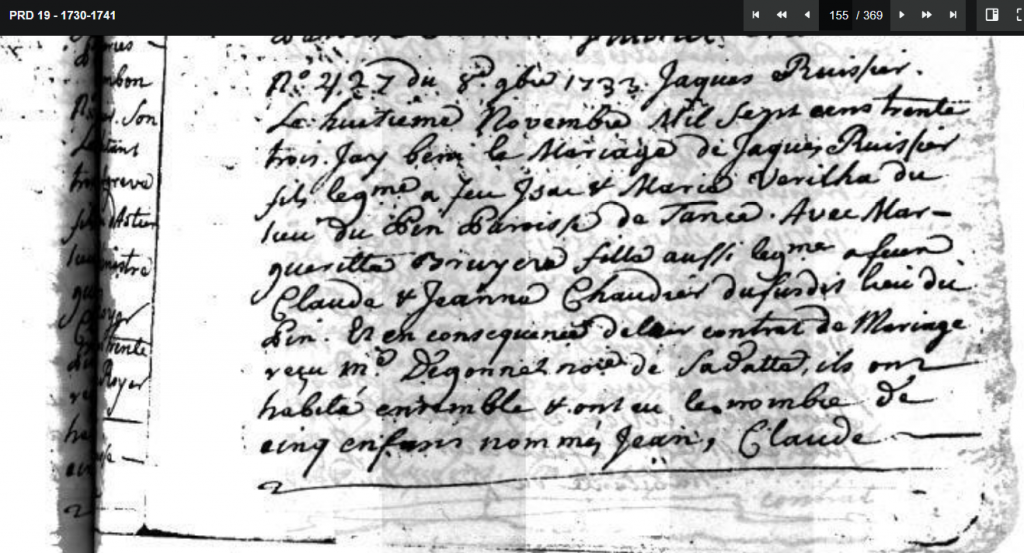 PRD 19 - 1730-1741
155 / 369
N.º 427 du 8.ᵈ 9bre 1733 Jaques Ruissier.
Le huitieme Novembre Mil Sept cens trente
trois. Jay beni le Mariage de Jaques Ruissier
fils legme a feu Isac & Marie Verilha du
lieu du Pin Paroisse de Tance. Avec Mar-
gueritte Bruyere fille aussi legme a feu
Claude & Jeanne Chaudier du susdit lieu du
Pin. Et en consequence de leur contrat de Mariage
reçu Mᵉ Degonnet noire de Sadatta, ils ont
habité ensemble & ont eu le nombre de
cinq enfans nommés Jean, Claude